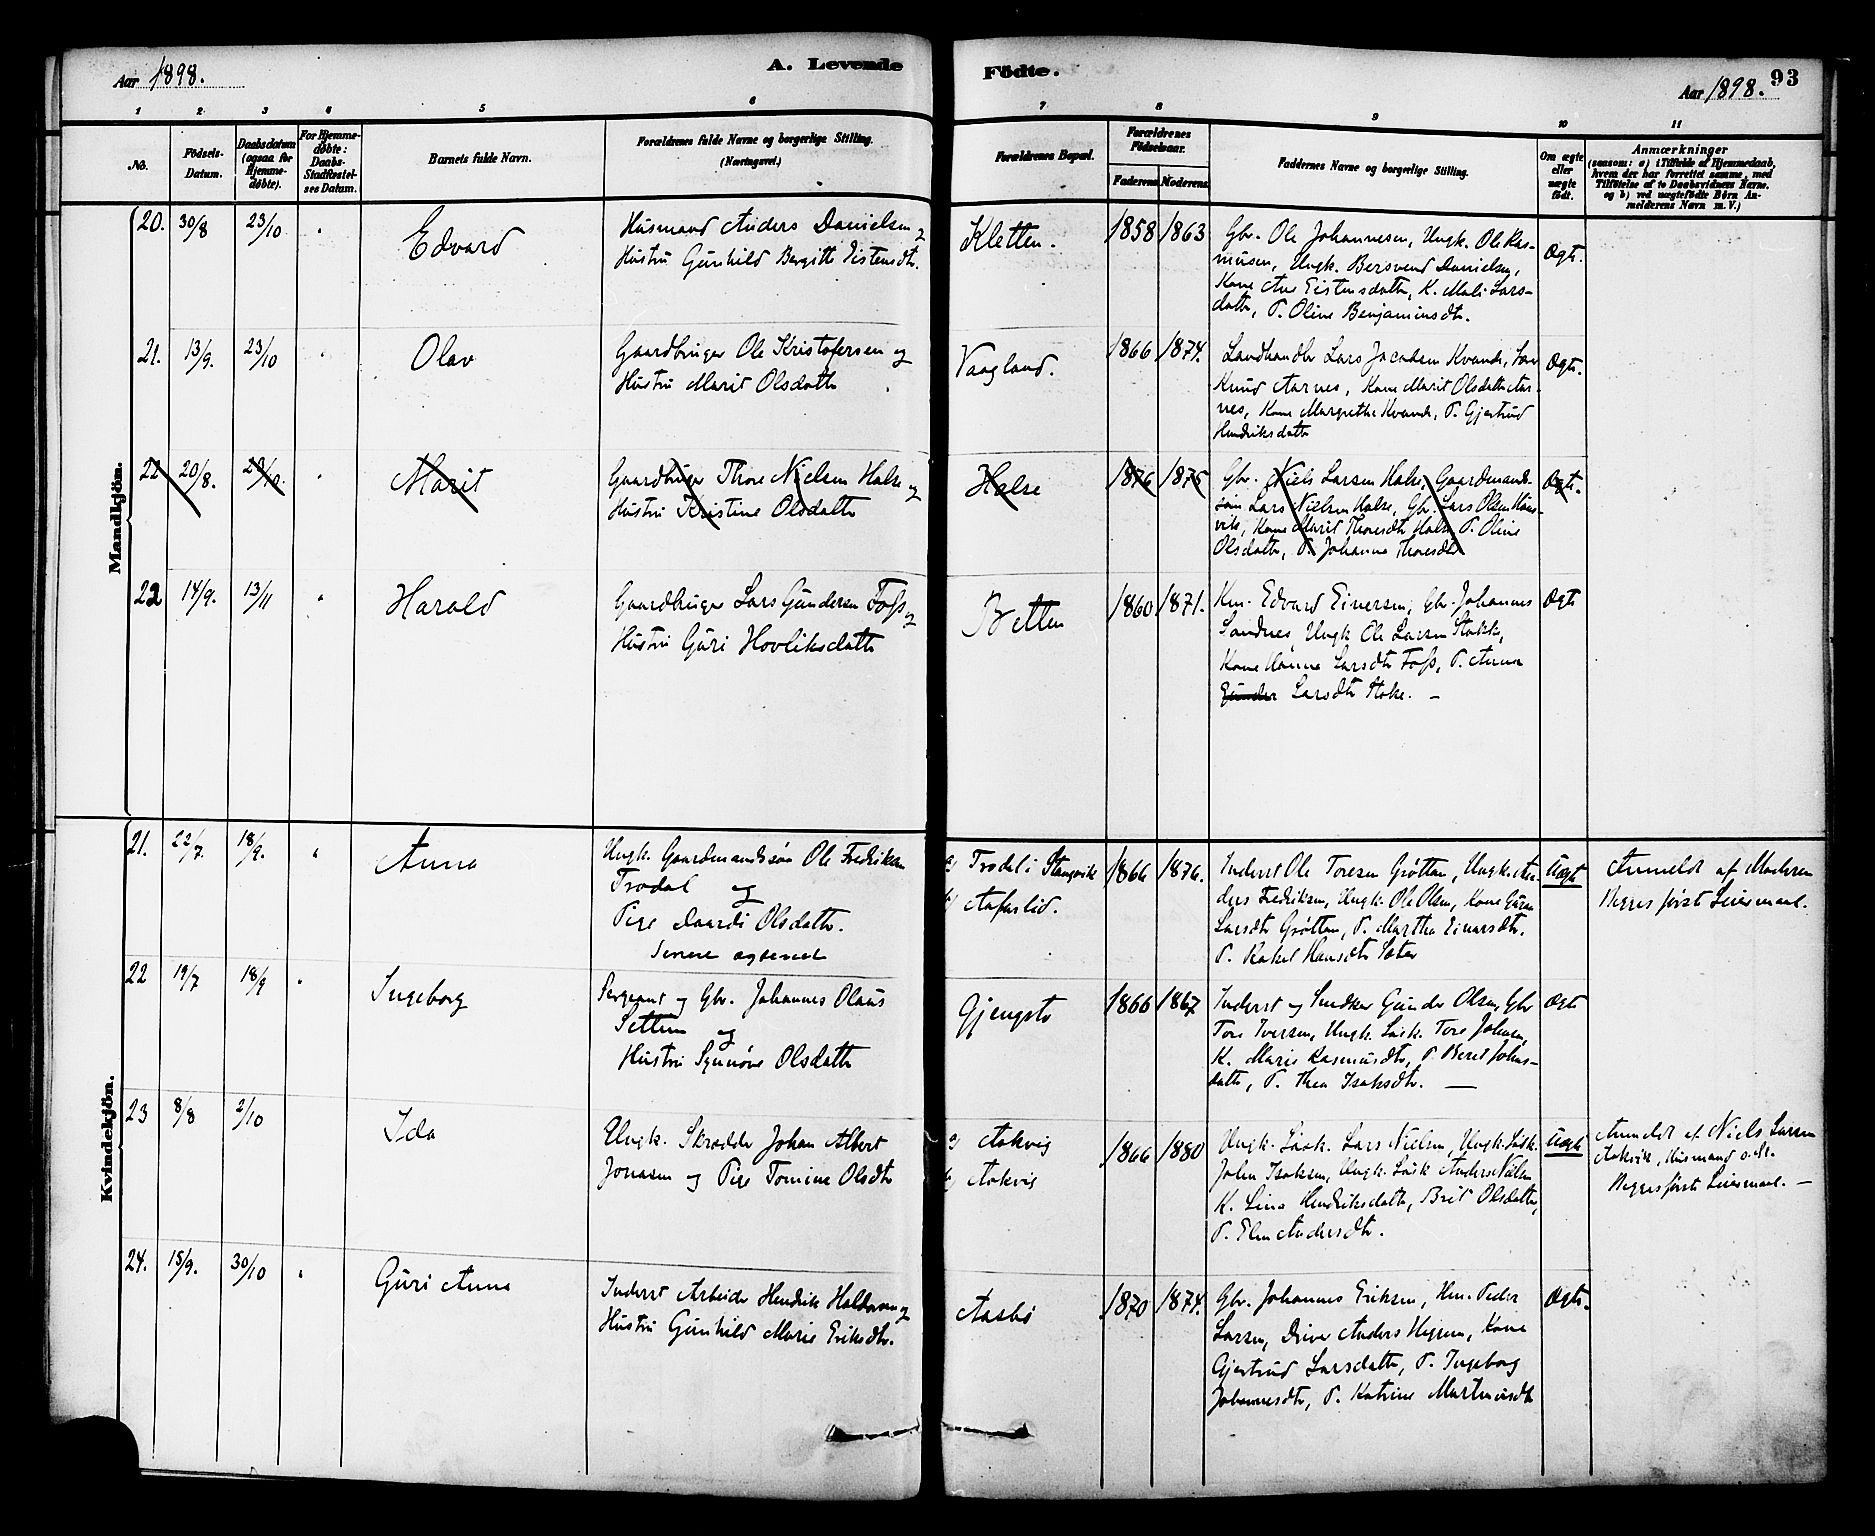 Aar 1898.
A. Levende
Födte.
Aar 1898.
93
1 2 3 4 5 6 7 8 9 10 11
No.
Födsels-
Datum.
Daabsdatum
(ogsaa for
Hjemme-
døbte).
For Hjemme-
døbte:
Daabs-
Stadfæstel-
ses Datum.
Barnets fulde Navn.
Forældrenes fulde Navne og borgerlige Stilling.
(Næringsvei.)
Forældrenes Bopæl.
Forældrenes
Födselsaar.
Faderens Moderens
Faddernes Navne og borgerlige Stilling.
Om ægte
eller
uægte
født.
Anmærkninger
(saasom: a) i Tilfælde af Hjemmedaab,
hvem der har forrettet samme, med
Tilføielse af to Daabsvidners Navne,
og b) ved uægtefödte Börn An-
melderens Navn m. V.)
Mandkjön.
20. 30/8 23/10 Edvard
Husmand Anders Danielsen og
Hustru Gunhild Bergitte Eistensdtr.
Kletten. 1858 1863
Gbr. Ole Johannesen, Ungk. Ole Ras-
musen, Ungk. Bersvend Danielsen,
Kone Ane Eistensdatter, K. Mali Lars-
datter, P. Oline Benjaminsdtr.
Ægte.
21. 13/9. 23/10 Olav
Gaardbruger Ole Kristofersen og
Hustru Marit Olsdatter
Vaagland. 1866 1874.
Landhandler Lars Jacobsen Kvande,
Knud Aarnes, Kone Marit Olsdatter Aar-
nes, Kone Margrethe Kvande, P. Gjertrud
Hendriksdatter
Ægte.
22 20/8. 23/10. Marit
Gaardbruger Thore Nielsen Halse og
Hustru Kristine Olsdatter
Halse 1876 1875
Gbr. Niels Larsen Halse, Gaardmand-
søn Lars Nielsen Halse, Gbr. Lars Olsen
vik, Kone Marit Thoresdtr Halse P. Oline
Olsdatter, P. Johanne Thoresdtr
Ægte.
22 14/9. 13/11 Harald
Gaardbruger Lars Gundersen Foss og
Hustru Guri Hovliksdatter
Betten 1860 1871.
Km. Edvard Einersen, Gbr. Johannes
Sandnes, Ungk Ole Larsen Stokke,
Kone Hanna Larsdtr Foss, P. Anna
Gunder Larsdtr Stoke. –
Ægte
Kvindekjön.
21. 22/7. 18/9. Anna
Ungk. Gaardmandssøn Ole Fredriksen
Trodal og
Pige Daardi Olsdatter.
Senere ægteviet
a) Trodal i Stangvik
b) Aafarlid.
1866 1876.
Inderst Ole Toresen Grøtten, Ungk. An-
ders Fredriksen, Ungk. Ole Olsen, Kone Guran
Larsdtr Grøtten, P. Martha Einarsdtr.
P. Rakel Hansdtr Sæter
Uægte
Anmeldt af Moderen
Begges første Leiermaal.
22 19/7 18/9 Ingeborg
Sergeant og Gbr. Johannes Olaus
Settem og
Hustru Synnøve Olsdatter
Gjengstø 1866 1867
Inderst og Snedker Gunder Olsen, Gbr
Tore Iversen, Ungk. Tore Johnsen,
K. Marie Rasmusdtr, P. Beret Johns-
datter, P. Thea Isaksdtr. –
Ægte
23 8/8 2/10 Ida
Ungk. Skrædder Johan Albert
Jonasen og Pige Tomine Olsdtr
a) Aakvig
b) Aakvig
1866 1880
Ungk. Lars Nielsen, Ungk.
John Isaksen, Ungk. Anders Nielsen
K. Lina Hendriksdatter, Brit Olsdatter,
P. Elen Andersdtr.
Uægte
Anmeldt af Niels Larsen
Aakvik, Husmand
Begges første Leiermaal. –
24. 15/9. 30/10 Guri Anna
Inderst Arbeider Hendrik Haldorsen og
Hustru Gunhild Marie Eriksdtr.
Aasbø 1870 1874.
Gbr. Johannes Eriksen, Hm. Peder
Larsen, Anders Kone
Gjertrud Larsdatter, P. Ingeborg
Johannesdtr, P. Katrine Martinusdtr
Ægte.